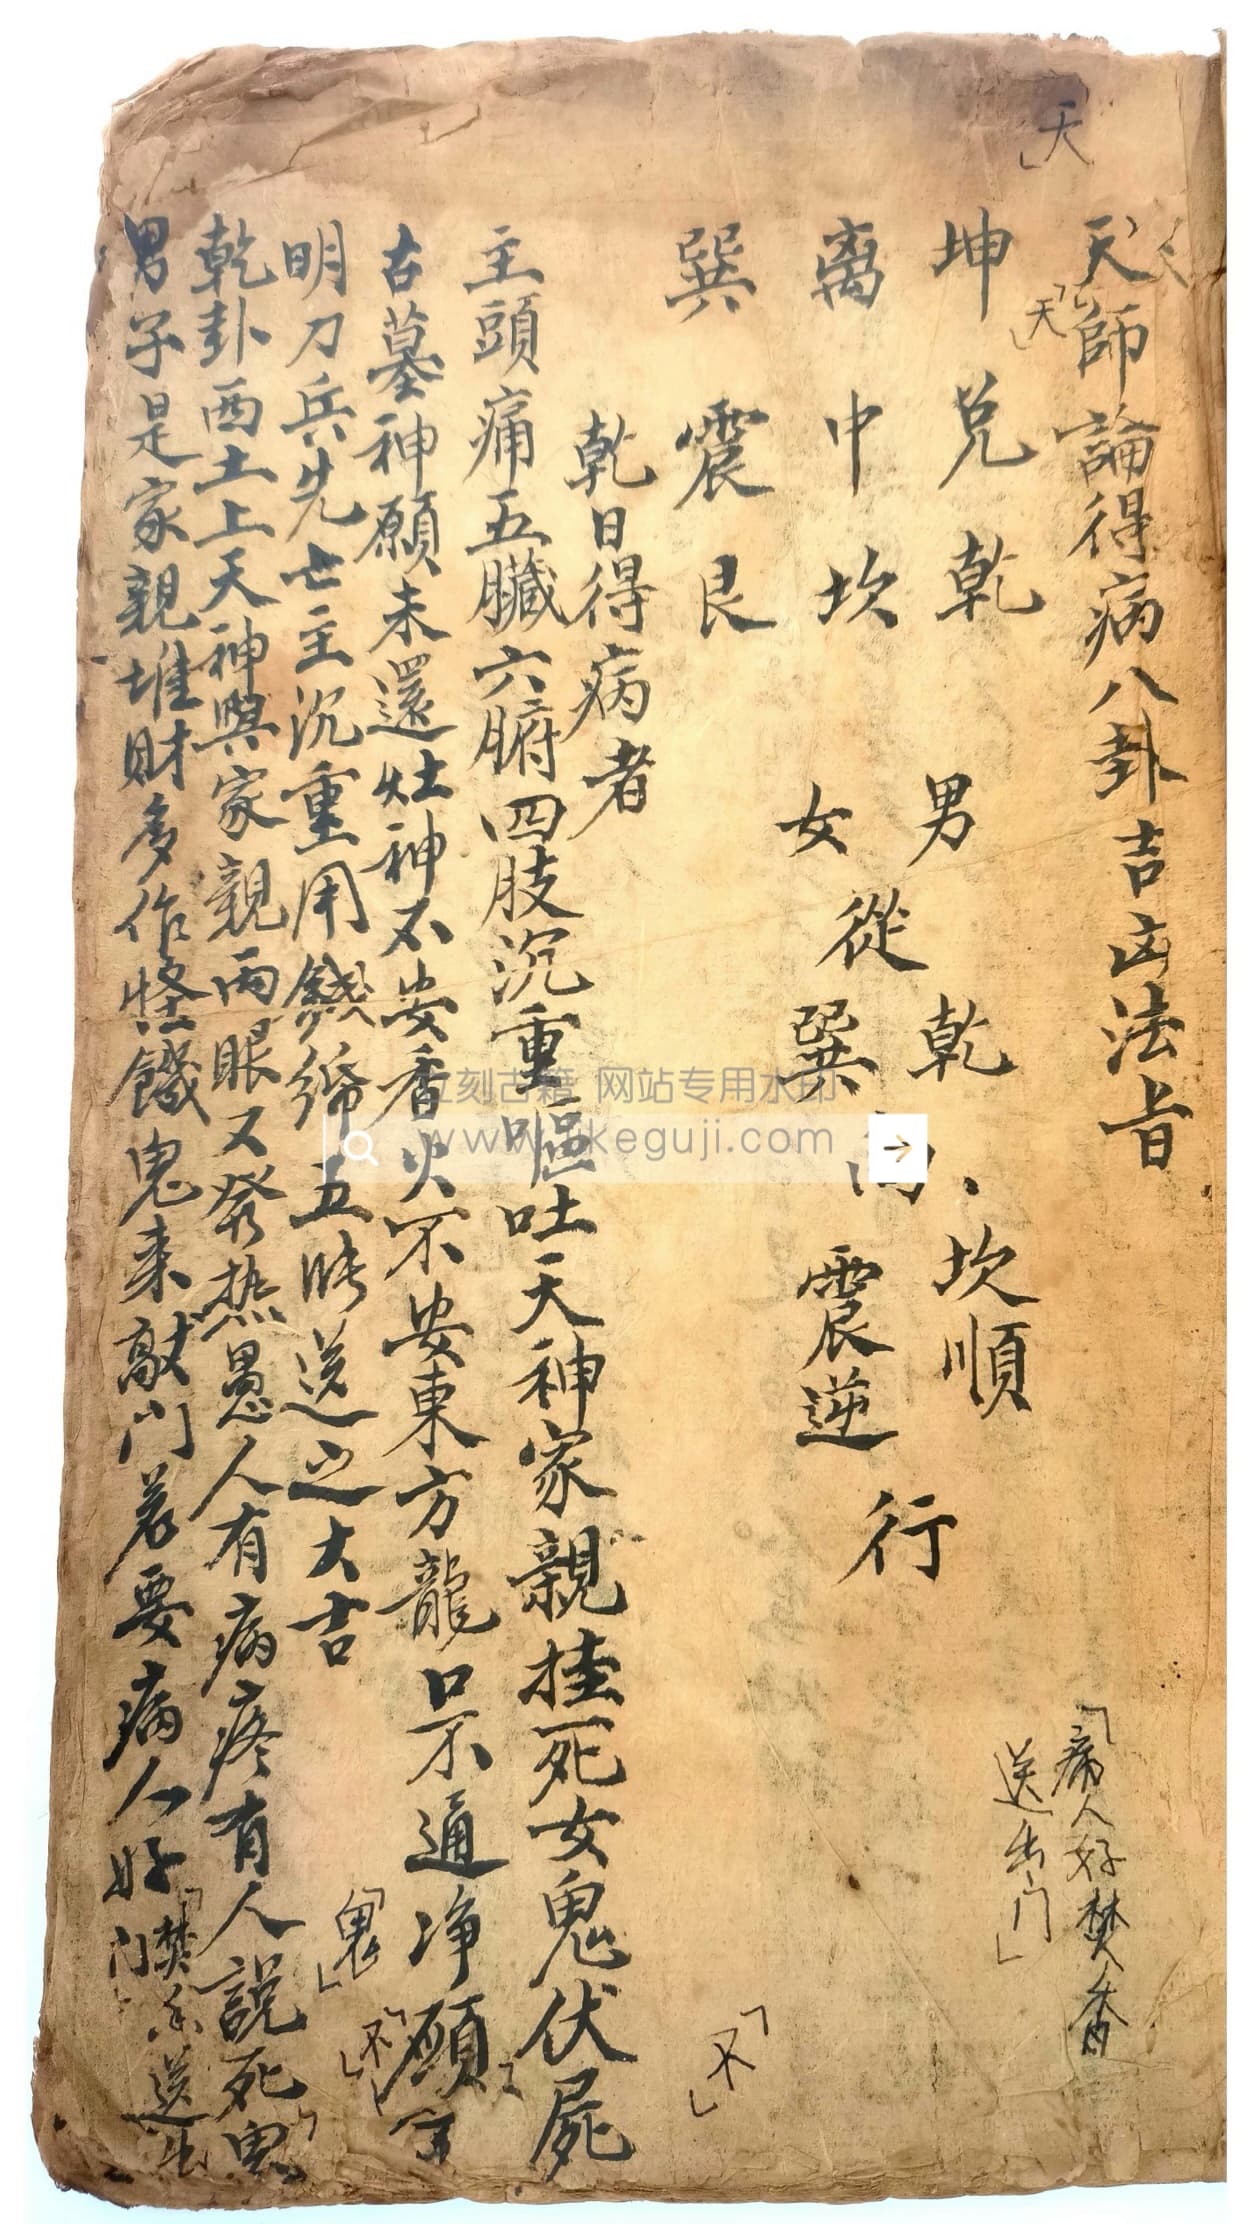 天
天師論得病八卦吉凶法旨
「天」
「病人好焚香
送出门」
坤 兌 乾
男 乾 坎順
離 中 坎
女 從 巽 震逆 行
巽 震 艮
「不」
乾日得病者
主頭痛五臟六腑四肢沉重嘔吐天神家親挂死女鬼伏屍
古墓神願未還灶神不安香火不安東方龍口不通净願
「不」
「鬼」
明刀兵先亡主沉重用錢 五 送之大吉
乾卦西土上天神與家親両眼又發热愚人有病疼有人說死鬼
男子是家親堆財多作怪饑鬼来敲门若要病人好
「焚香送出
门
立刻古籍 网站专用水印
www.likeguji.com